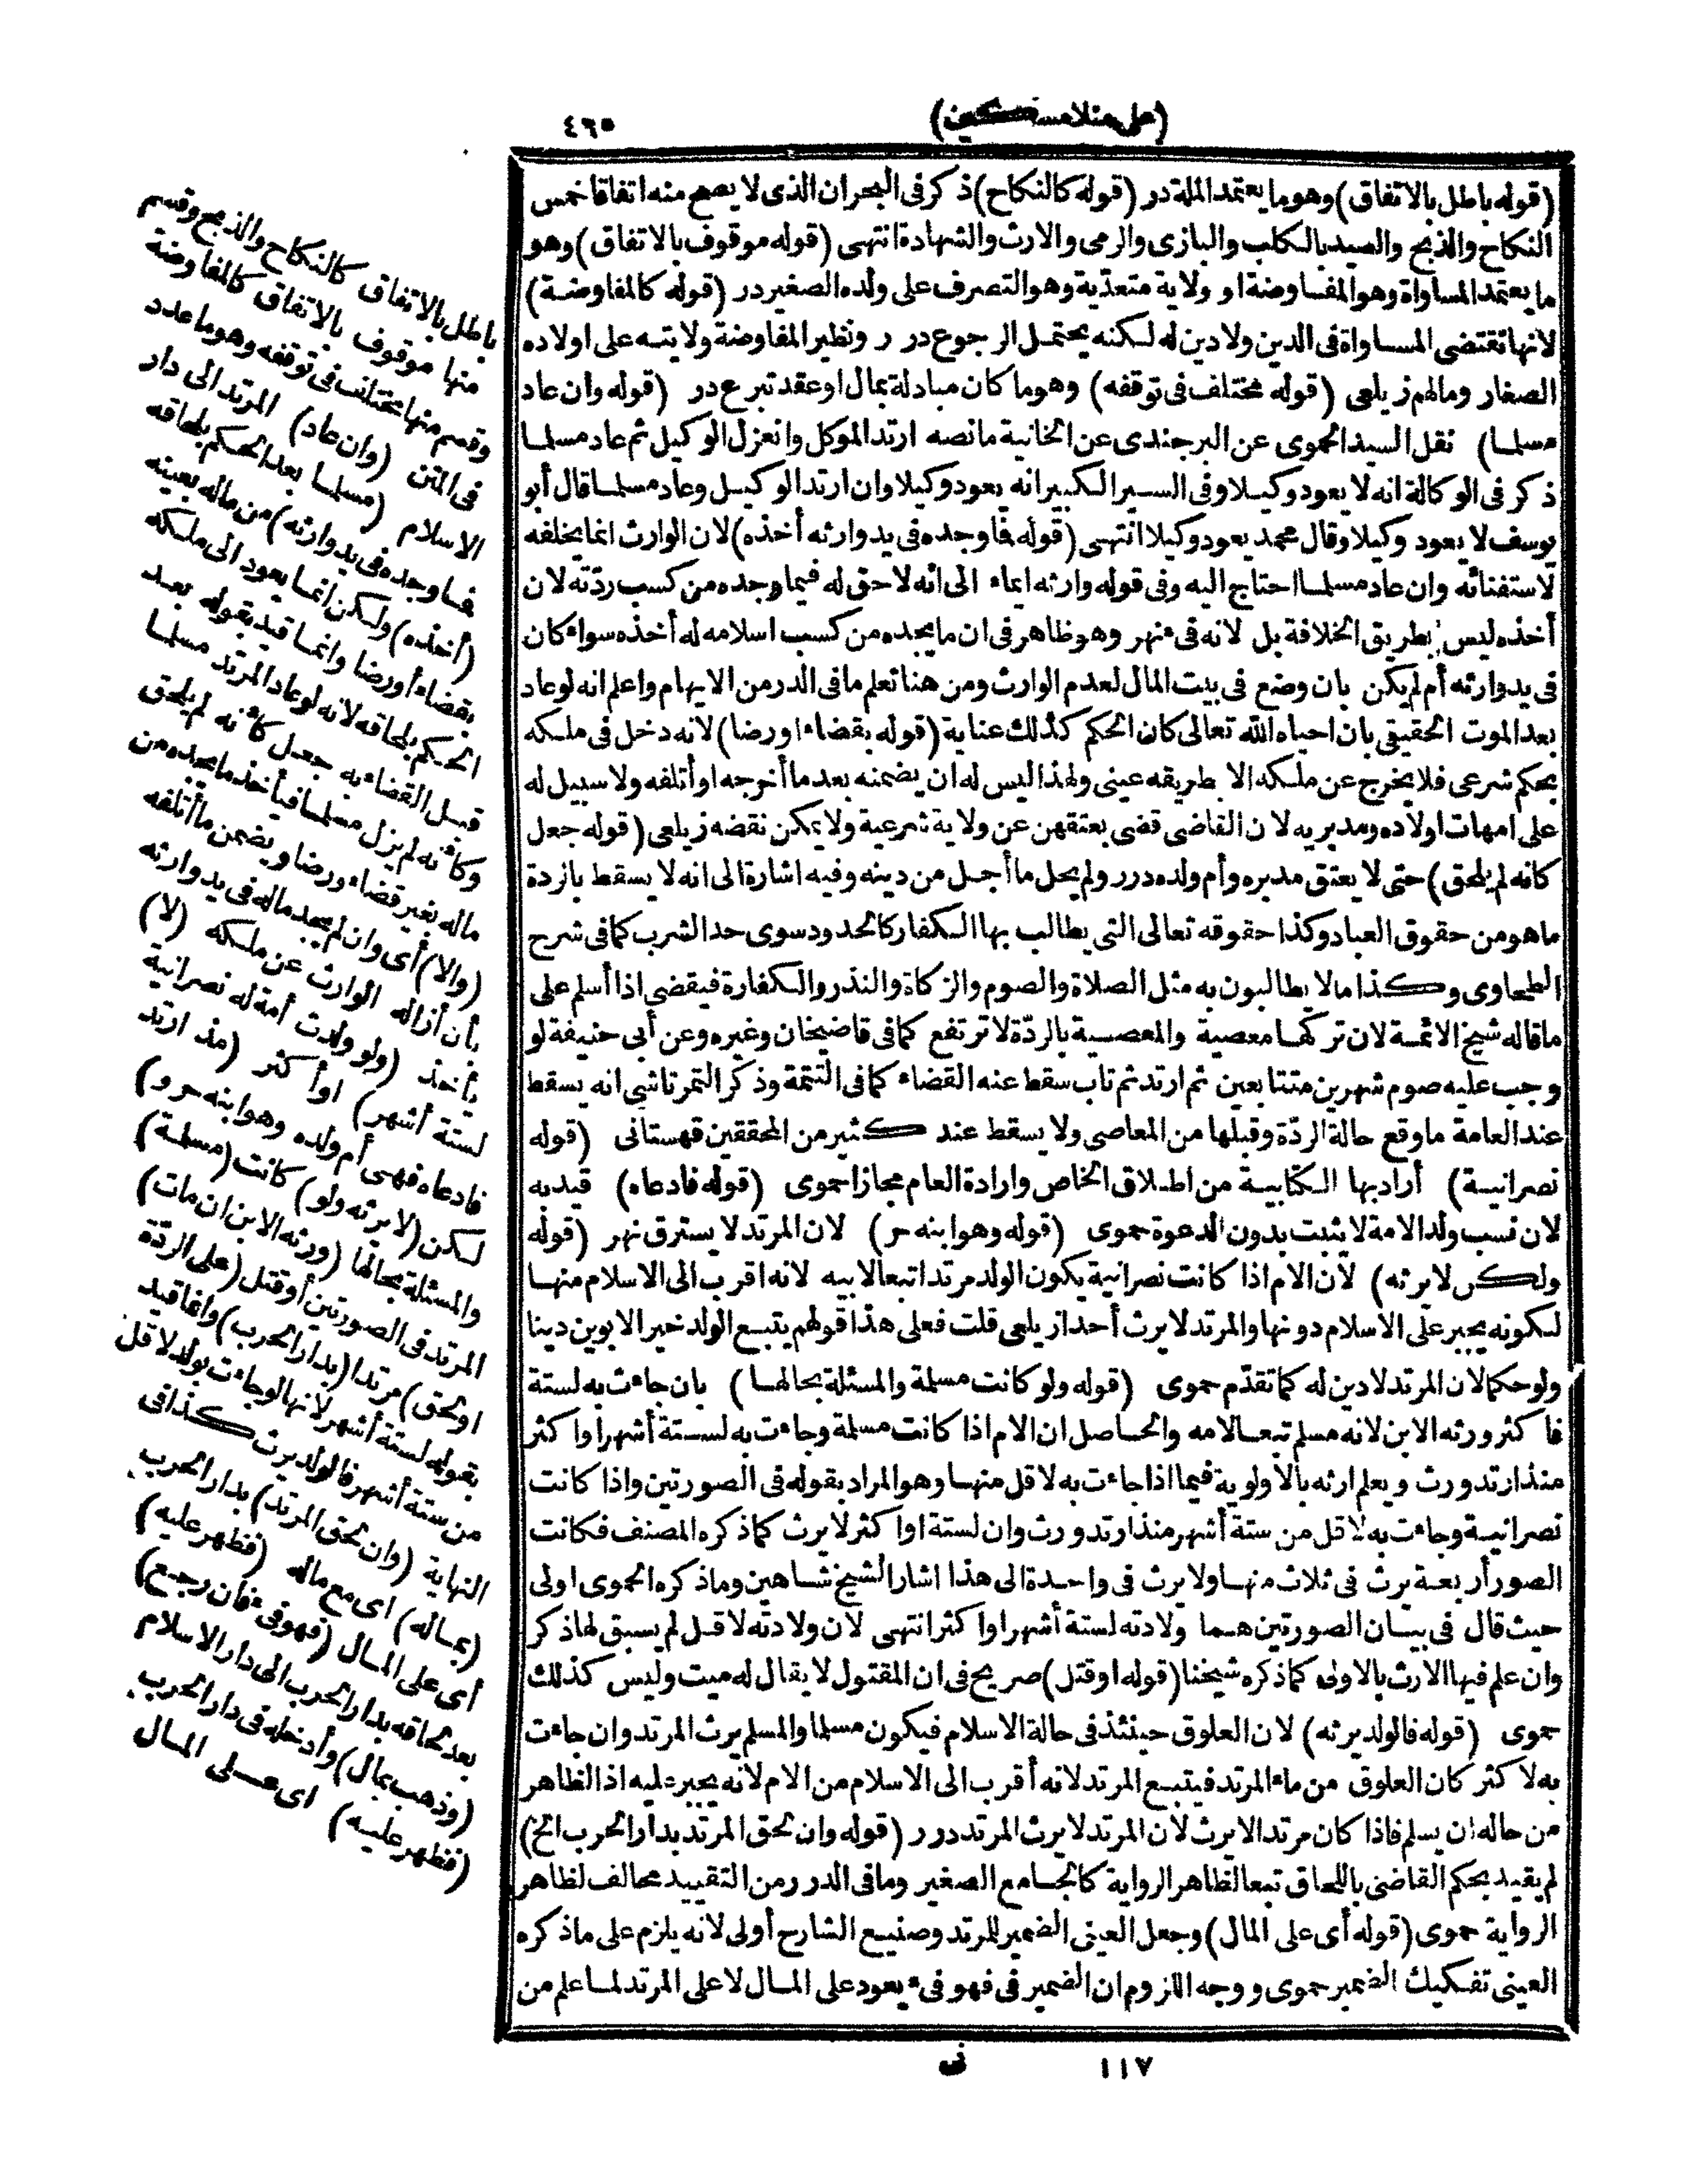 (على منلا مسكين)
٤٦٥
(قوله باطل بالاتفاق) وهو ما يعتمد الملة در (قوله كالنكاح) ذكر فى البحر ان الذى لا يصح منه اتفاقا خمس
النكاح والذبح والصيد بالكلب والبازى والرمى والارث والشهادة انتهى (قوله موقوف بالاتفاق) وهو
ما يعتمد المساواة وهو المفاوضة او ولاية متعدّية وهو التصرف على ولده الصغير در (قوله كالمفاوضة)
لانها تقتضى المساواة فى الدين ولا دين له لكنه يحتمل الرجوع درر ونظير المفاوضة ولايته على اولاده
الصغار ومالهم زيلعى (قوله مختلف فى توقفه) وهو ما كان مبادلة بمال او عقد تبرع در (قوله وان عاد
مسلما) نقل السيد الحموى عن البرجندى عن الخانية ما نصه ارتد الموكل وانعزل الوكيل ثم عاد مسلما
ذكر فى الوكالة انه لا يعود وكيلا وفى السير الكبير انه يعود وكيلا وان ارتد الوكيل وعاد مسلما قال أبو
يوسف لا يعود وكيلا وقال محمد يعود وكيلا انتهى (قوله فما وجده فى يد وارثه أخذه) لان الوارث انما يخلفه
لاستغنائه وان عاد مسلما احتاج اليه وفى قوله وارثه ايماء الى انه لا حق له فيما وجده من كسب ردّته لان
أخذه ليس بطريق الخلافة بل لانه فىء نهر وهو ظاهر فى ان ما يجده من كسب اسلامه له أخذه سواء كان
فى يد وارثه أم لم يكن بان وضع فى بيت المال لعدم الوارث ومن هنا تعلم ما فى الدر من الايهام واعلم انه لو عاد
بعد الموت الحقيقى بان احياه الله تعالى كان الحكم كذلك عناية (قوله بقضاء او رضا) لانه دخل فى ملكه
بحكم شرعى فلا يخرج عن ملكه الا بطريقه عينى ولهذا ليس له ان يضمنه بعد ما أخرجه او أتلفه ولا سبيل له
على امهات اولاده ومدبريه لان القاضى قضى بعتقهن عن ولاية شرعية ولا يمكن نقضه زيلعى (قوله جعل
كانه لم يلحق) حتى لا يعتق مدبره وأم ولده درر ولم يحل ما أجل من دينه وفيه اشارة الى انه لا يسقط بالردة
ما هو من حقوق العباد وكذا حقوقه تعالى التى يطالب بها الكفار كالحدود سوى حد الشرب كما فى شرح
الطحاوى وكذا ما لا يطالبون به مثل الصلاة والصوم والزكاة والنذر والكفارة فيقضى اذا أسلم على
ما قاله شيخ الائمة لان تركها معصية والمعصية بالردّة لا ترتفع كما فى قاضيخان وغيره وعن أبى حنيفة لو
وجب عليه صوم شهرين متتابعين ثم ارتد ثم تاب سقط عنه القضاء كما فى التتمة وذكر التمرتاشى انه يسقط
عند العامة ما وقع حالة الردّة وقبلها من المعاصى ولا يسقط عند كثير من المحققين قهستانى (قوله
نصرانية) أراد بها الكتابية من اطلاق الخاص وارادة العام مجازا حموى (قوله فادعاه) قيد به
لان نسب ولد الامة لا يثبت بدون الدعوة حموى (قوله وهو ابنه حر) لان المرتد لا يسترق نهر (قوله
ولكن لا يرثه) لان الام اذا كانت نصرانية يكون الولد مرتدا تبعا لابيه لانه اقرب الى الاسلام منها
لكونه يجبر على الاسلام دونها والمرتد لا يرث أحدا زيلعى قلت فعلى هذا قولهم يتبع الولد خير الابوين دينا
ولو حكما لان المرتد لا دين له كما تقدّم حموى (قوله ولو كانت مسلمة والمسئلة بحالها) بان جاءت به لستة
فاكثر ورثه الابن لانه مسلم تبعا لامه والحاصل ان الام اذا كانت مسلمة وجاءت به لستة أشهر او اكثر
منذ ارتد ورث ويعلم ارثه بالاولوية فيما اذا جاءت به لاقل منها وهو المراد بقوله فى الصورتين واذا كانت
نصرانية وجاءت به لاقل من ستة أشهر منذ ارتد ورث وان لستة او اكثر لا يرث كما ذكره المصنف فكانت
الصور أربعة يرث فى ثلاث منها ولا يرث فى واحدة الى هذا اشار الشيخ شاهين وما ذكره الحموى اولى
حيث قال فى بيان الصورتين هما ولادته لستة أشهر او اكثر انتهى لان ولادته لاقل لم يسبق لها ذكر
وان علم فيها الارث بالاولى كما ذكره شيخنا (قوله او قتل) صريح فى ان المقتول لا يقال له ميت وليس كذلك
حموى (قوله فالولد يرثه) لان العلوق حينئذ فى حالة الاسلام فيكون مسلما والمسلم يرث المرتد وان جاءت
به لاكثر كان العلوق من ماء المرتد فيتبع المرتد لانه أقرب الى الاسلام من الام لانه يجبر عليه اذ الظاهر
من حاله ان يسلم فاذا كان مرتدا لا يرث لان المرتد لا يرث المرتد درر (قوله وان لحق المرتد بدار الحرب الخ)
لم يقيد بحكم القاضى باللحاق تبعا لظاهر الرواية كالجامع الصغير وما فى الدرر من التقييد مخالف لظاهر
الرواية حموى (قوله أى على المال) وجعل العينى الضمير للمرتد وصنيع الشارح أولى لانه يلزم على ما ذكره
العينى تفكيك الضمير حموى ووجه اللزوم ان الضمير فى فهو فىء يعود على المال لا على المرتد لما علم من
باطل بالاتفاق كالنكاح والذبح وقسم
منها موقوف بالاتفاق كالمفاوضة
وقسم منها مختلف فى توقفه وهو ما عدد
فى المتن (وان عاد) المرتد الى دار
الاسلام (مسلما بعد الحكم بلحاقه
فما وجده فى يد وارثه) من ماله بعينه
(أخذه) ولكن انما يعود الى ملكه
بقضاء أو رضا وانما قيد بقوله بعد
الحكم بلحاقه لانه لو عاد المرتد مسلما
قبل القضاء به جعل كأنه لم يلحق
وكأنه لم يزل مسلما فيأخذ ما يجده من
ماله بغير قضاء ورضا ويضمن ما أتلفه
(والا) أى وان لم يجد ماله فى يد وارثه
بأن أزاله الوارث عن ملكه (لا)
يأخذ (ولو ولدت أمة له نصرانية
لستة أشهر) او أكثر (مذ ارتد
فادعاه فهى أم ولده وهو ابنه حر و)
لكن (لا يرثه ولو) كانت (مسلمة)
والمسئلة بحالها (ورثه الابن ان مات)
المرتد فى الصورتين أو قتل (على الردّة
او لحق) مرتدا (بدار الحرب) وانما قيد
بقوله لستة أشهر لانها لو جاءت بولد لاقل
من ستة أشهر فالولد يرث كذا فى
النهاية (وان لحق المرتد) بدار الحرب
(بماله) اى مع ماله (فظهر عليه)
أى على المال (فهو فىء فان رجع)
بعد لحاقه بدار الحرب الى دار الاسلام
(وذهب بمال) وأدخله فى دار الحرب
(فظهر عليه) اى على المال
١١٧
نى